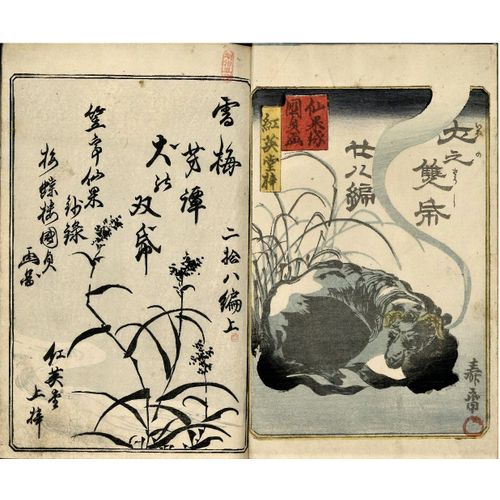 犬之雙帋
いぬの
廿八編
仙果抄
國貞画
紅英堂梓
雪梅
芳譚
犬の双帋
二拾八編上
笠亭仙果
鈔録
國貞
画
紅英堂
上梓